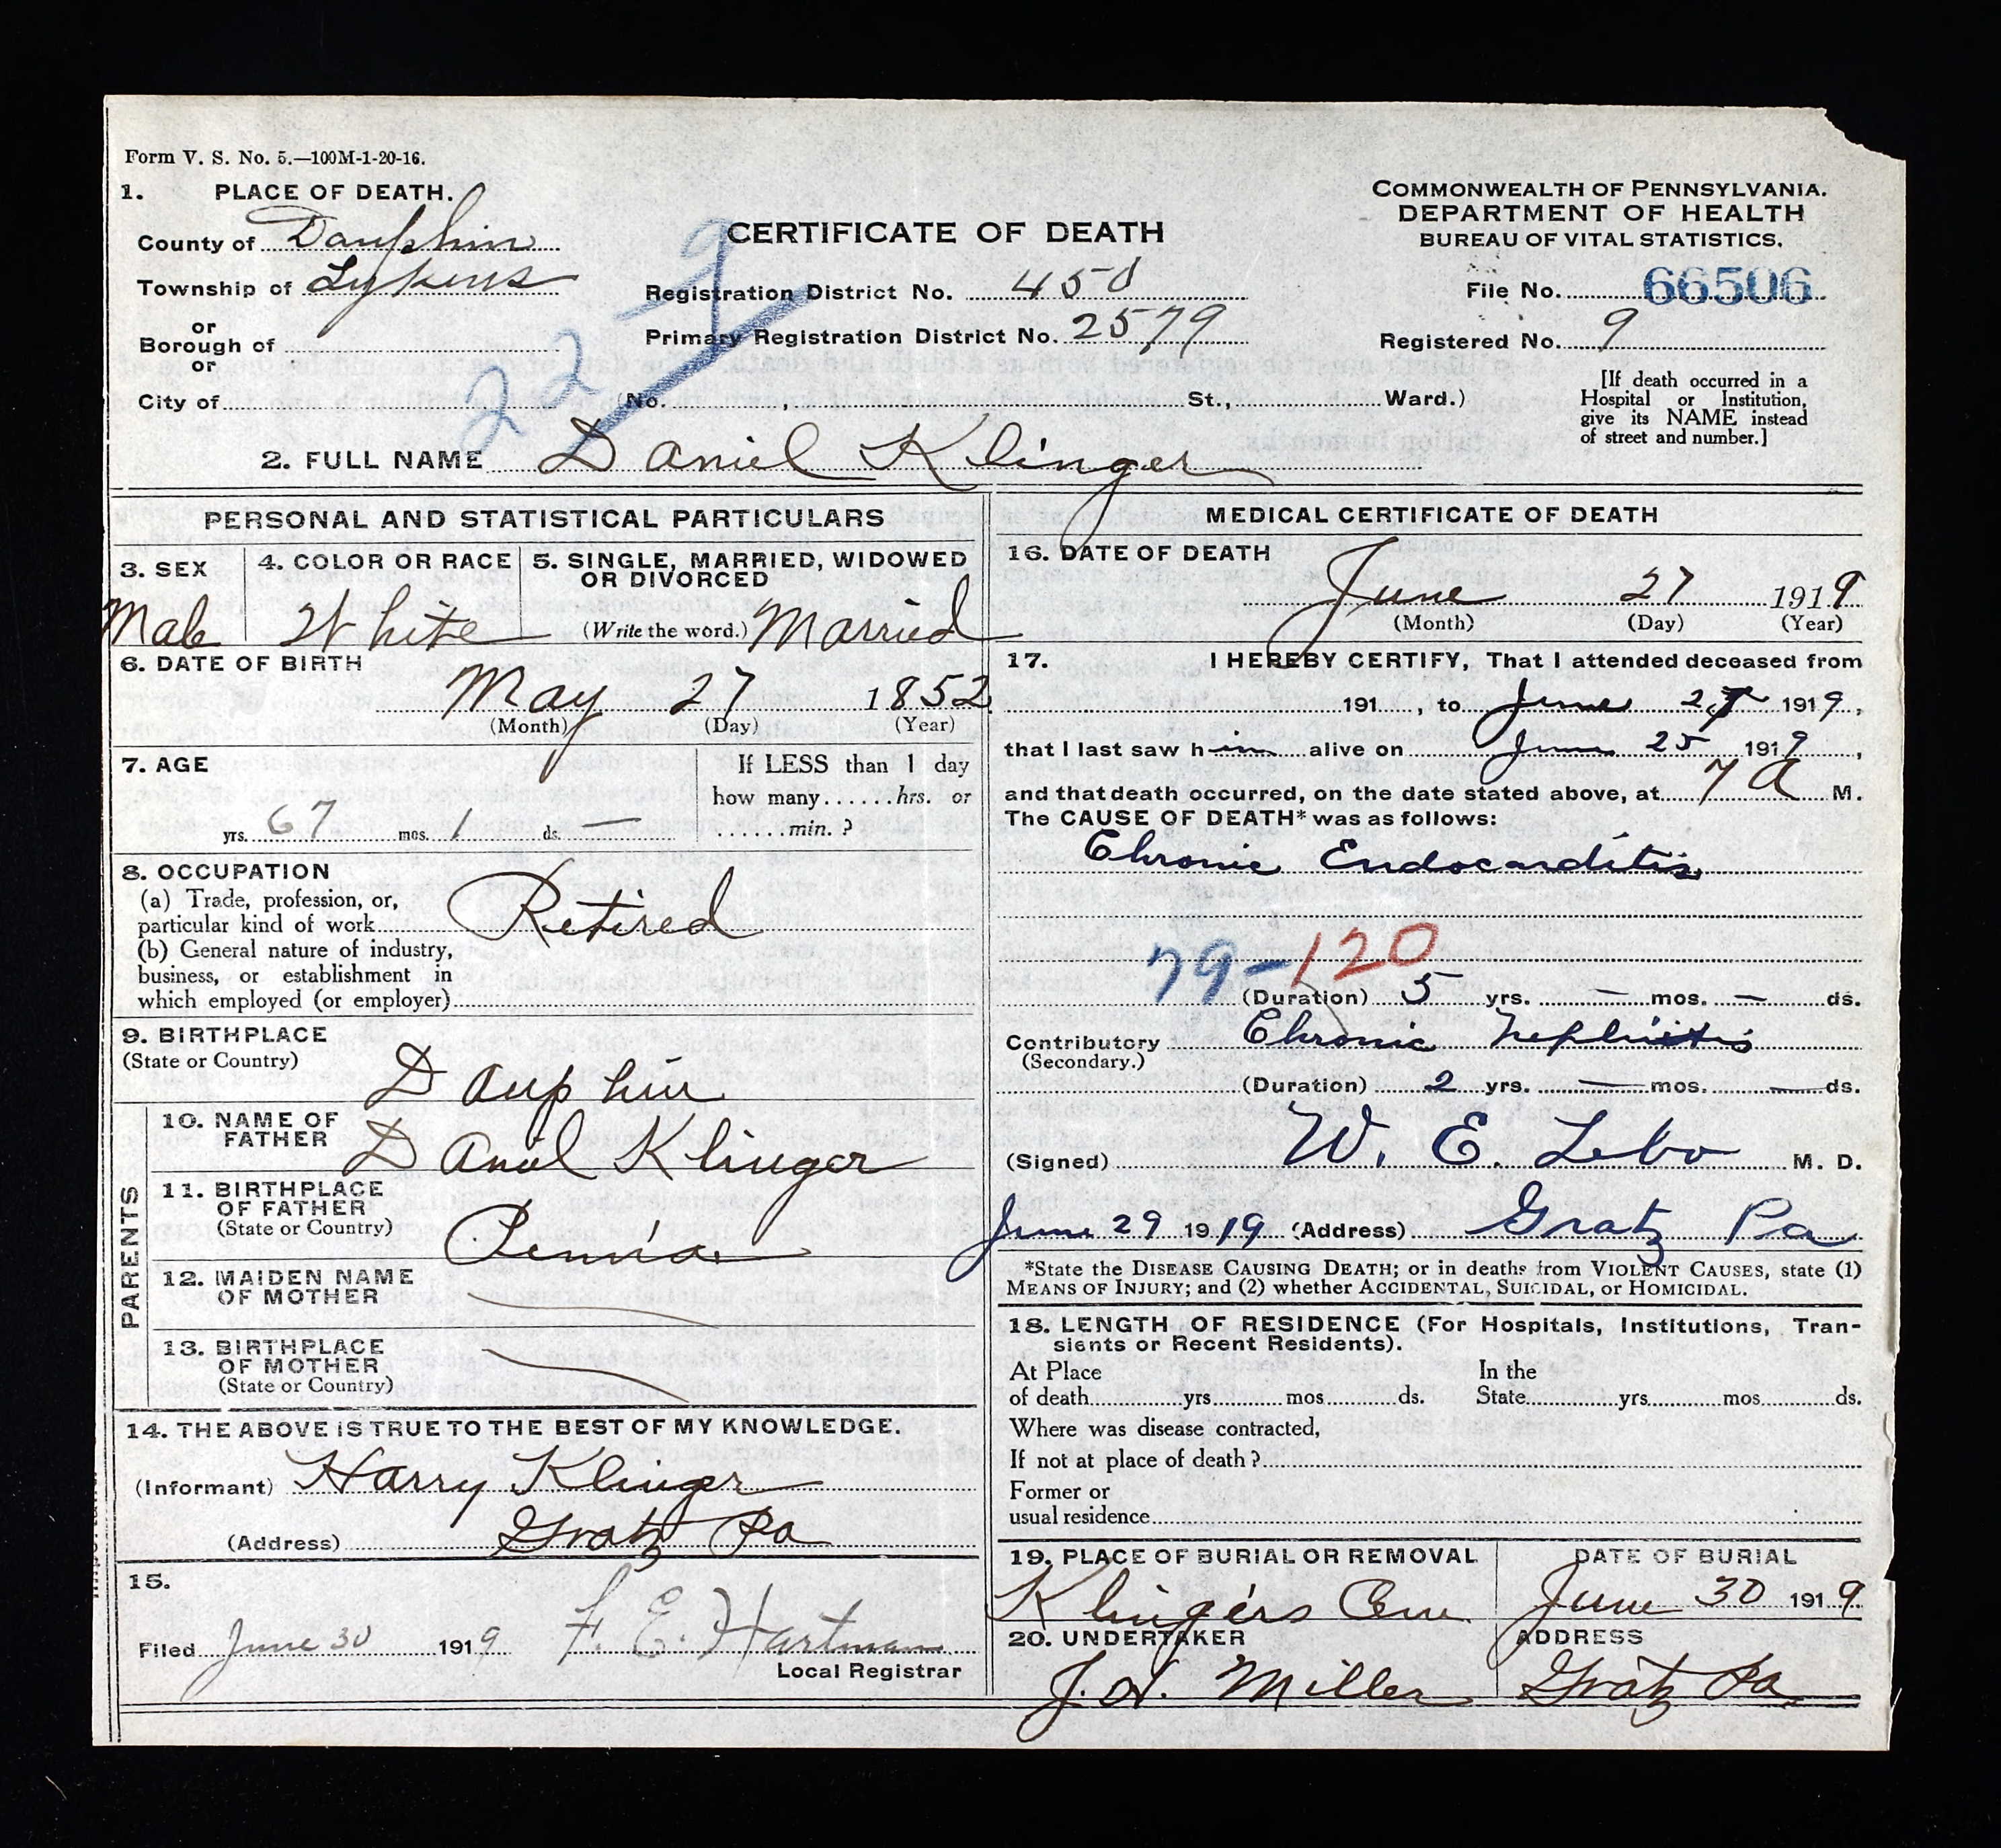 Form V. S. No. 5.—100M-1-20-16.
1. PLACE OF DEATH.
County of Dauphin
Township of Lykens
or
Borough of
or
City of
CERTIFICATE OF DEATH
Registration District No. 450
Primary Registration District No. 2579
(No. , St., Ward.)
COMMONWEALTH OF PENNSYLVANIA.
DEPARTMENT OF HEALTH
BUREAU OF VITAL STATISTICS.
File No. 66506
Registered No. 9
[If death occurred in a
Hospital or Institution,
give its NAME instead
of street and number.]
22 9
2. FULL NAME Daniel Klinger
PERSONAL AND STATISTICAL PARTICULARS
3. SEX
Male
4. COLOR OR RACE
White
5. SINGLE, MARRIED, WIDOWED
OR DIVORCED
(Write the word.) Married
6. DATE OF BIRTH
May 27 1852
(Month) (Day) (Year)
7. AGE
yrs. 67 mos. 1 ds. —
If LESS than 1 day
how many ...... hrs. or
...... min. ?
8. OCCUPATION
(a) Trade, profession, or,
particular kind of work Retired
(b) General nature of industry,
business, or establishment in
which employed (or employer)
9. BIRTHPLACE
(State or Country)
Dauphin
PARENTS
10. NAME OF
FATHER
Daniel Klinger
11. BIRTHPLACE
OF FATHER
(State or Country)
Penn'a
12. MAIDEN NAME
OF MOTHER
13. BIRTHPLACE
OF MOTHER
(State or Country)
14. THE ABOVE IS TRUE TO THE BEST OF MY KNOWLEDGE.
(Informant) Harry Klinger
(Address) Gratz Pa
15.
Filed June 30 1919 F. E. Hartman
Local Registrar
MEDICAL CERTIFICATE OF DEATH
16. DATE OF DEATH
June 27 1919
(Month) (Day) (Year)
17. I HEREBY CERTIFY, That I attended deceased from
191 , to June 27 1919,
that I last saw him alive on June 25 1919,
and that death occurred, on the date stated above, at 7 A M.
The CAUSE OF DEATH* was as follows:
Chronic Endocarditis
79-120
(Duration) 5 yrs. — mos. — ds.
Contributory Chronic Nephritis
(Secondary.)
(Duration) 2 yrs. — mos. — ds.
(Signed) W. E. Lebo M. D.
June 29 1919 (Address) Gratz Pa
*State the DISEASE CAUSING DEATH; or in deaths from VIOLENT CAUSES, state (1)
MEANS OF INJURY; and (2) whether ACCIDENTAL, SUICIDAL, or HOMICIDAL.
18. LENGTH OF RESIDENCE (For Hospitals, Institutions, Tran-
sients or Recent Residents).
At Place In the
of death yrs mos ds. State yrs mos ds.
Where was disease contracted,
If not at place of death?
Former or
usual residence
19. PLACE OF BURIAL OR REMOVAL
Klinger's Cem.
DATE OF BURIAL
June 30 1919
20. UNDERTAKER
J. H. Miller
ADDRESS
Gratz Pa